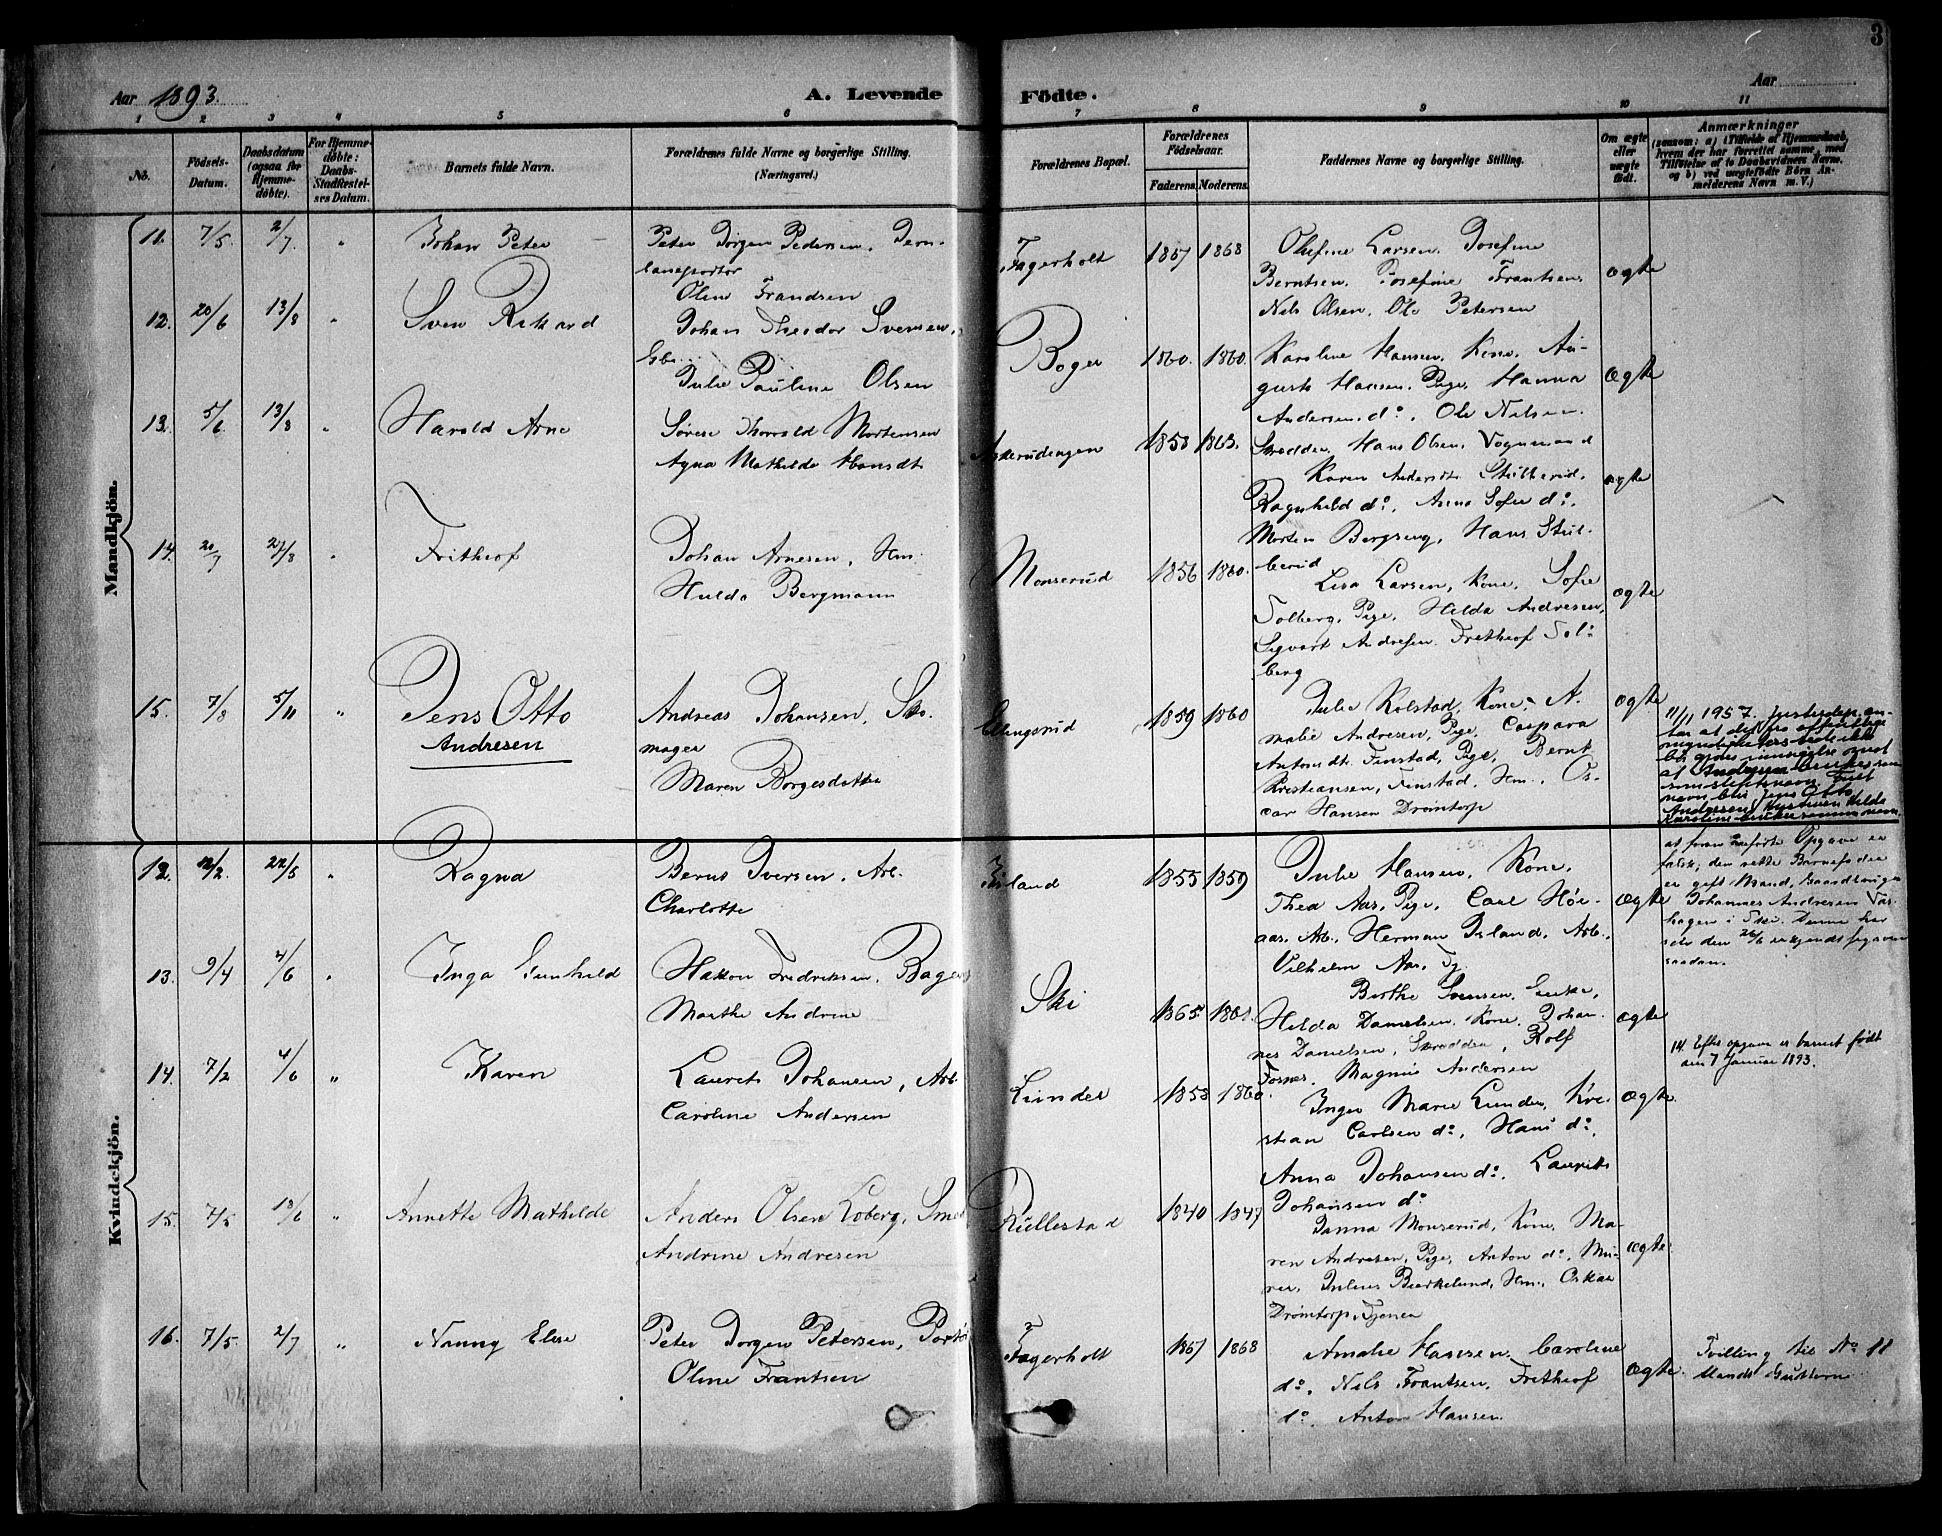 3
Aar 1893. A. Levende Födte. Aar
1 2 3 4 5 6 7 8 9 10 11
No. Födsels-Datum. Daabsdatum (ogsaa for Hjemmedöbte). For Hjemmedöbte: Daabs-Stadfæstelses Datum. Barnets fulde Navn. Forældrenes fulde Navne og borgerlige Stilling. (Næringsvei.) Forældrenes Bopæl. Forældrenes Födselsaar. Faderens. Moderens. Faddernes Navne og borgerlige Stilling. Om ægte eller uægte födt. Anmærkninger (saasom: a) i Tilfælde af Hjemmedaab, hvem der har forrettet samme, med Tilföielse af to Daabsvidners Navne, og b) ved uægtefödte Börn Anmelderens Navn m. V.)
Mandkjön.
11. 7/5. 2/7. " Johan Peter Peter Jörgen Pedersen, Jern-
baneportör
Oline Frandsen
Fagerholt 1867 1868 Olufine Larsen, Josefine
Berntsen, Josefine Frantsen,
Nils Olsen, Ole Petersen
ægte
12. 20/6 13/8 " Sven Rikard Johan Theodor Svensen,
Julie Pauline Olsen
Boger 1860. 1860. Karoline Hansen, Kone, Au-
gusta Hansen, Pige, Hanna
Andersen do, Ole Nilsen
Skrædder, Hans Olsen, Vognmand
ægte
13. 5/6 13/8 " Harald Arne Sören Thorvald Mortensen
Agna Mathilde Hansdt.
Askerudengen 1858 1863. Karen Andersdt. Stubberud,
Ragnhild do, Anna Sofie do,
Morten Bergseng, Hans Stub-
berud
ægte
14. 20/7 27/8 " Frithjof Johan Arnesen, Hm.
Hulda Bergmann
Monserud 1856 1860. Lisa Larsen, Kone, Sofie
Solberg, Pige, Hilda Andresen,
Sigvart Andresen, Frithjof Sol-
berg
ægte
15. 7/8 5/11 " Jens Otto
Andresen
Andreas Johansen, Sko-
mager
Maren Borgesdatter
Ellingsrud 1859 1860 Julie Kolstad, Kone, A-
malie Andresen, Pige, Caspara
Antonsdt. Finstad, Pige, Bernt
Kristiansen, Finstad, Hm., Os-
car Hansen Drömtorp
ægte
11/11 1957. Justisdep. an-
tar at det fra offentlige
myndigheters side ikke
bör gjöres innsigelse mot
at Andresen brukes som
som slektsnavn. Fullt
navn blir Jens Otto
Andresen. Hustruen Hilda
Karoline bruker samme navn.
Kvindekjön.
12. 12/2. 22/5 " Ragna Bernt Iversen, Arb.
Charlotte
Island 1855 1859 Julie Hansen, Kone,
Thea Aas, Pige, Carl Höi-
aas, Arb., Herman Island, Arb.,
Vilhelm Aas, Tj.
ægte
at foran anförte Opgave er
falsk; den rette Barnefader
er gift Mand, Gaardbruger
Johannes Andresen
i Ski. Denne har
selv den 26/6 erkjendt sig som
saadan.
13. 9/4 4/6 " Inga Gunhild Hakon Fredriksen, Bager
Marthe Andrine
Ski 1865. 1861. Berthe Svensen, Enke,
Hilda Danielsen, Kone, Johan-
nes Danielsen, Skrædder, Rolf
Fosnes, Magnus Andersen
ægte
14. 7/2 4/6 " Karen Laurits Johansen, Arb.
Caroline Andersen
Lunder 1858 1860. Inger Marie Lunder, Kri-
stian Carlsen do, Hans do,
Anna Johansen do, Laurits
Johansen do
ægte
14 Efter opgave er barnet født
den 7 Januar 1893.
15. 7/5 18/6 " Annette Mathilde Anders Olsen Loberg, Smed
Andrine Andresen
Kullestad 1840 1847 Janna Monserud, Kone, Ma-
ren Andresen, Pige, Anton do, Mu-
rer, Julius Bierkelund, Hm., Oskar
Drömtorp, Tjener
ægte
16. 7/5. 2/7 " Nanny Elise Peter Jörgen Petersen, Portör
Oline Frantsen
Fagerholt 1867 1868 Amalie Hansen, Caroline
do, Nils Frantsen, Frithjof
do, Anton Hansen
ægte
Tvilling til No 11
Mandkjönnen